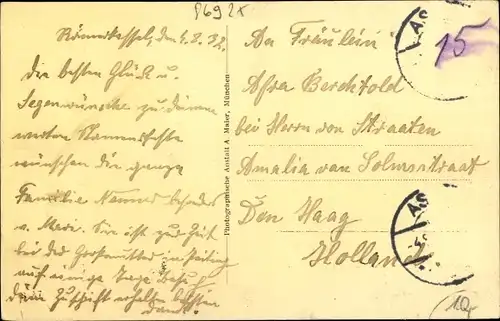 8692x
Römerkessel, den 4.8.32.
Die besten Glück u.
Segenwünsche zu Deinem
werten Namensfeste
wünschen die ganze
Familie
u. Mari. Sie ist zur Zeit
bei der Großmutter in
auf einige Tage Besuch
Deine Zuschrift erhalten besten
Dank.
Photographische Anstalt A. Maier, München
An Fräulein
Afra Berchtold
bei Herrn von Straaten
Amalia van Solmsstraat
Den Haag
Holland.
15
AS
AS
10,-